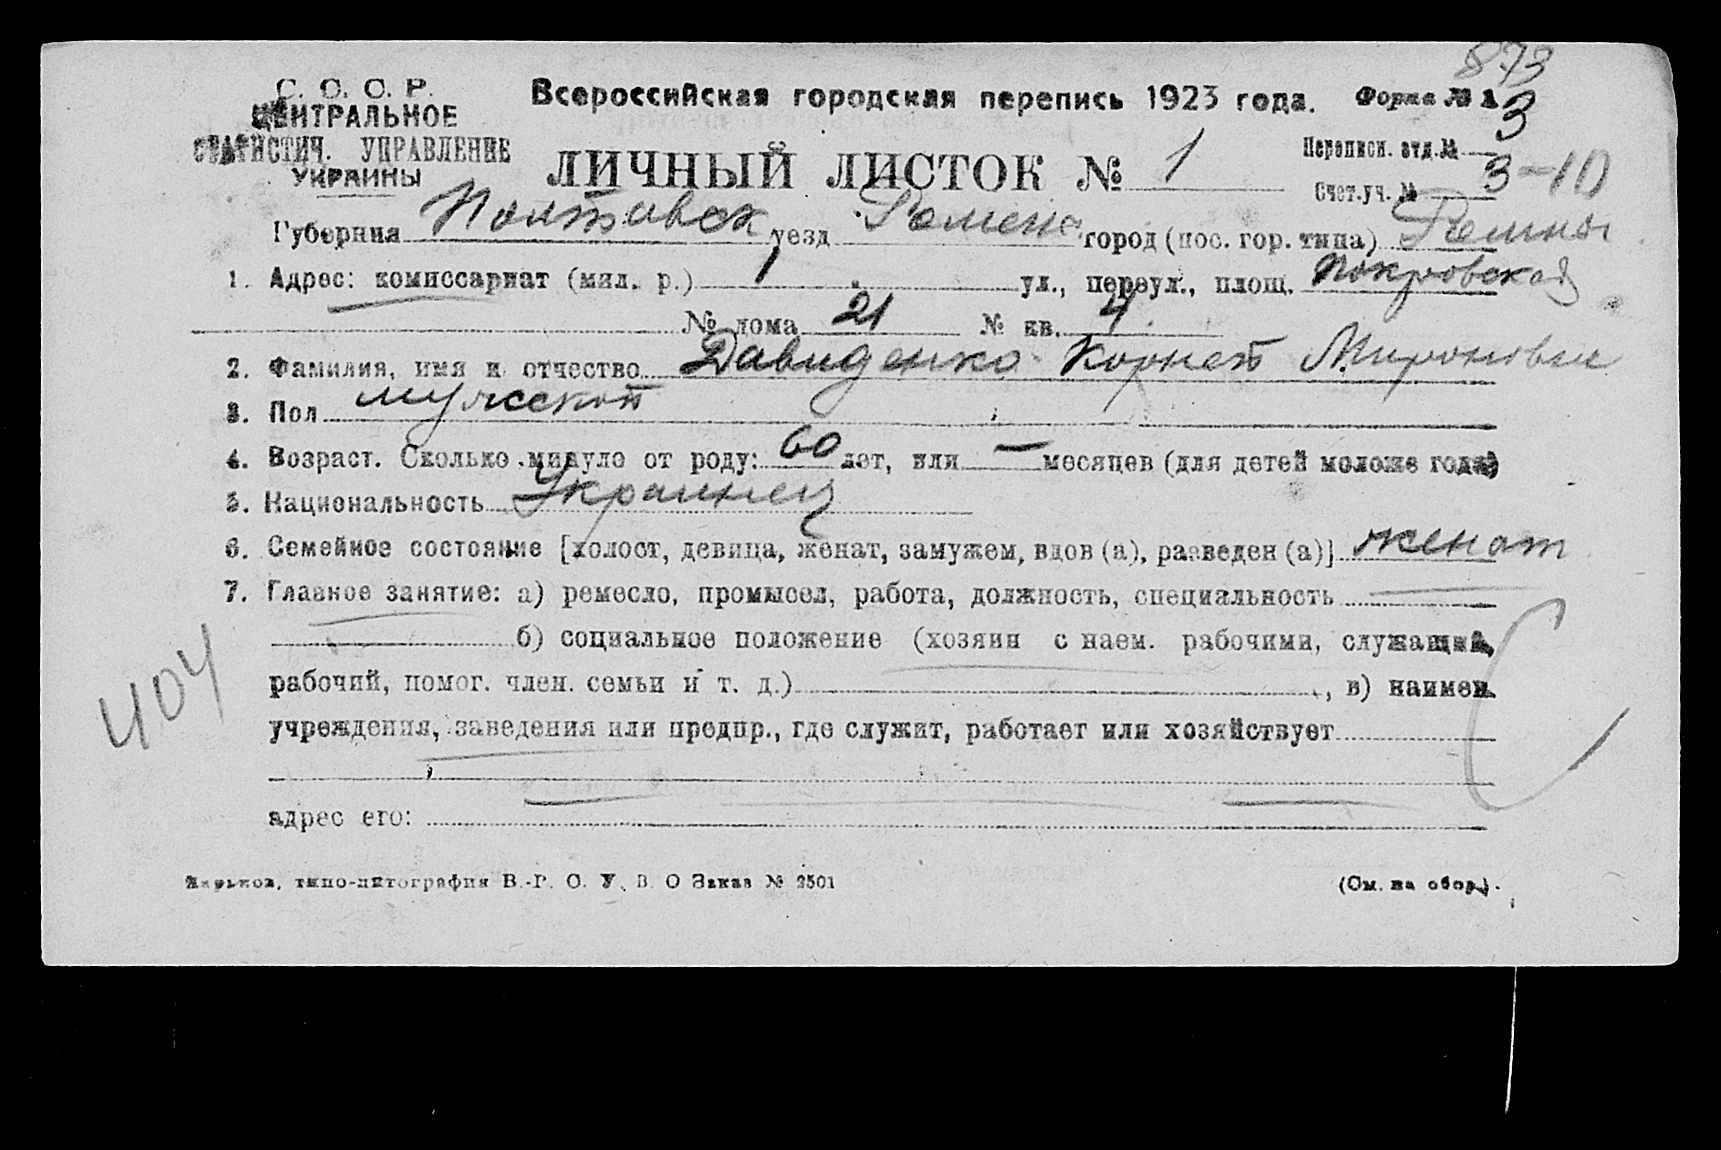 873
С. С. С. Р.
ЦЕНТРАЛЬНОЕ
СТАТИСТИЧ. УПРАВЛЕНИЕ
УКРАИНЫ
Всероссийская городская перепись 1923 года. Форма № 1
ЛИЧНЫЙ ЛИСТОК № 1
Переписн. отд. № 3
Счет. уч. № 3-10
Губерния Полтавск уезд Ромен город (пос. гор. типа) Ромны
1. Адрес: комиссариат (мил. р.) 1 ул., переул., площ. Покровская
№ дома 21 № кв. 4
2. Фамилия, имя и отчество Давиденко Корней Миронович
3. Пол мужской
4. Возраст. Сколько минуло от роду: 60 лет, или — месяцев (для детей моложе года)
5. Национальность Украинец
6. Семейное состояние [холост, девица, женат, замужем, вдов (а), разведен (а)] женат
7. Главное занятие: а) ремесло, промысел, работа, должность, специальность
б) социальное положение (хозяин с наем. рабочими, служащий,
рабочий, помог. член. семьи и т. д.) , в) наимен.
учреждения, заведения или предпр., где служит, работает или хозяйствует
адрес его:
404
Харьков, типо-литография В.-Р. О. У. В. О Заказ № 2501
(См. на обор.).